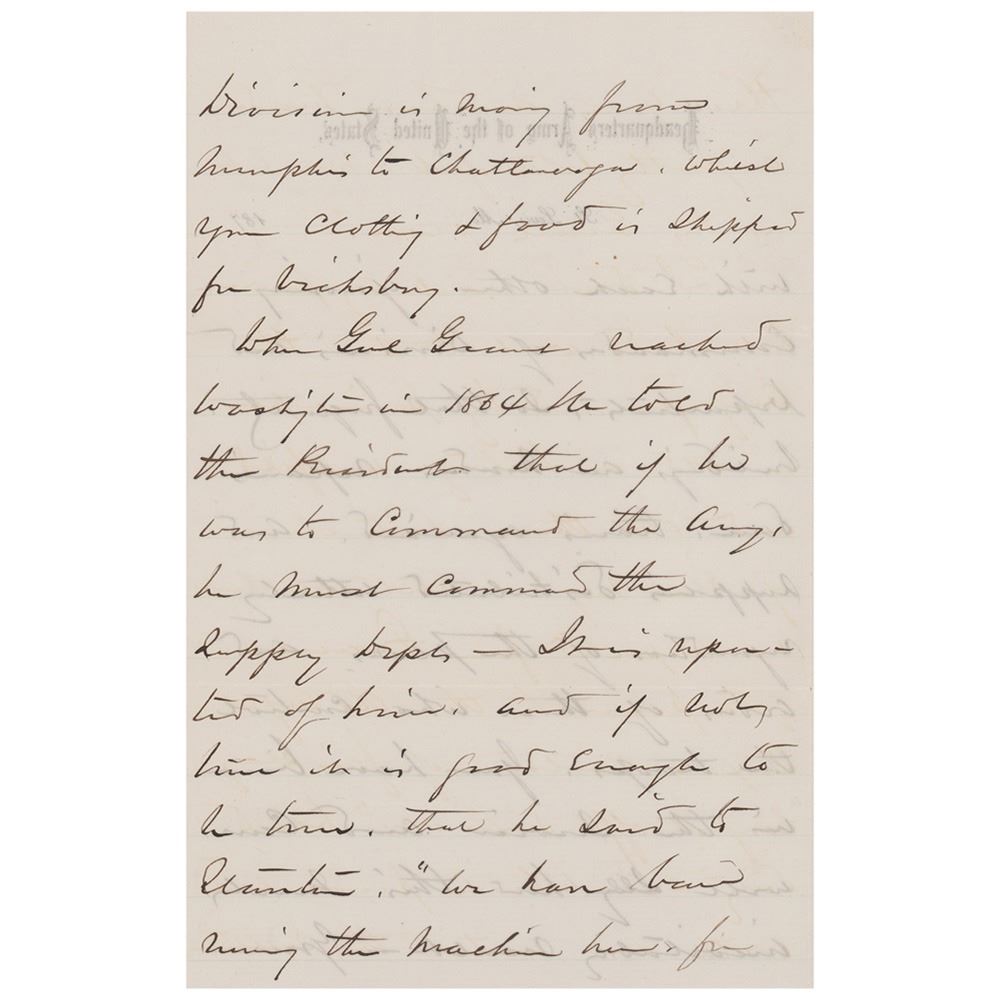 Division is moving from
Memphis to Chattanooga, whilst
your Clothing & food is shipped
for Vicksburg.
When Genl Grant reached
Washington in 1864 he told
the President that if he
was to Command the Army,
he must command the
Supply Depts — It is repor-
ted of him, and if not
true it is good enough to
be true, that he said to
Stanton, "We have been
runing the machine here for